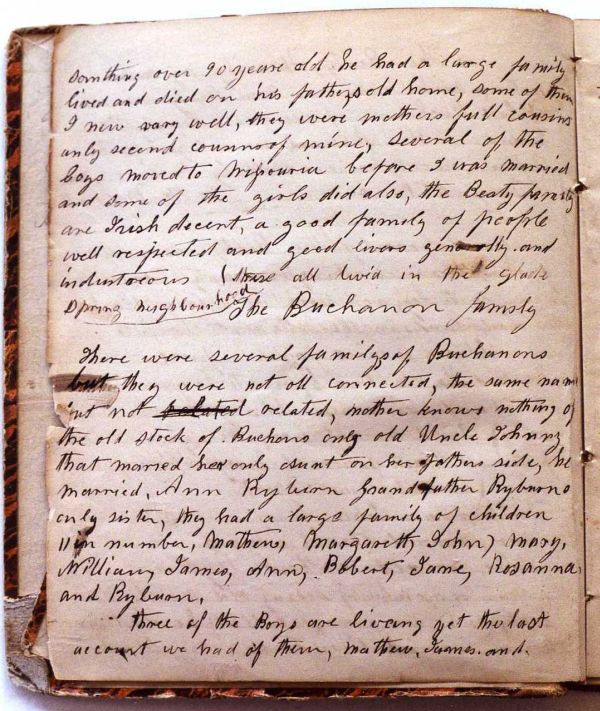 somthing over 90 years old he had a large family
lived and died on his fathers old home, some of them
I new vary well, they were mothers full cousins
only second cousins of mine, several of the
boys moved to Missouria before I was married
and some of the girls did also, the Beaty family
are Irish decent, a good family of people
well respected and good livers generally and
industreous these all liv'd in the glade
Spring neighbourhood
The Buchanon family
There were several familys of Buchanons
but they were not all connected, the same name
but not related related, mother knows nothing of
the old stock of Buchans only old Uncle Johnny
that married her only aunt on her fathers side, he
married, Ann Ryburn Grandfather Ryburns
only sister, they had a large family of children
11 in number, Mathew, Margarett, John, Mary,
William, James, Ann, Robert, Jane, Rosanna
and Ryburn,
three of the Boys are liveing yet the last
account we had of them, Mathew, James. and.